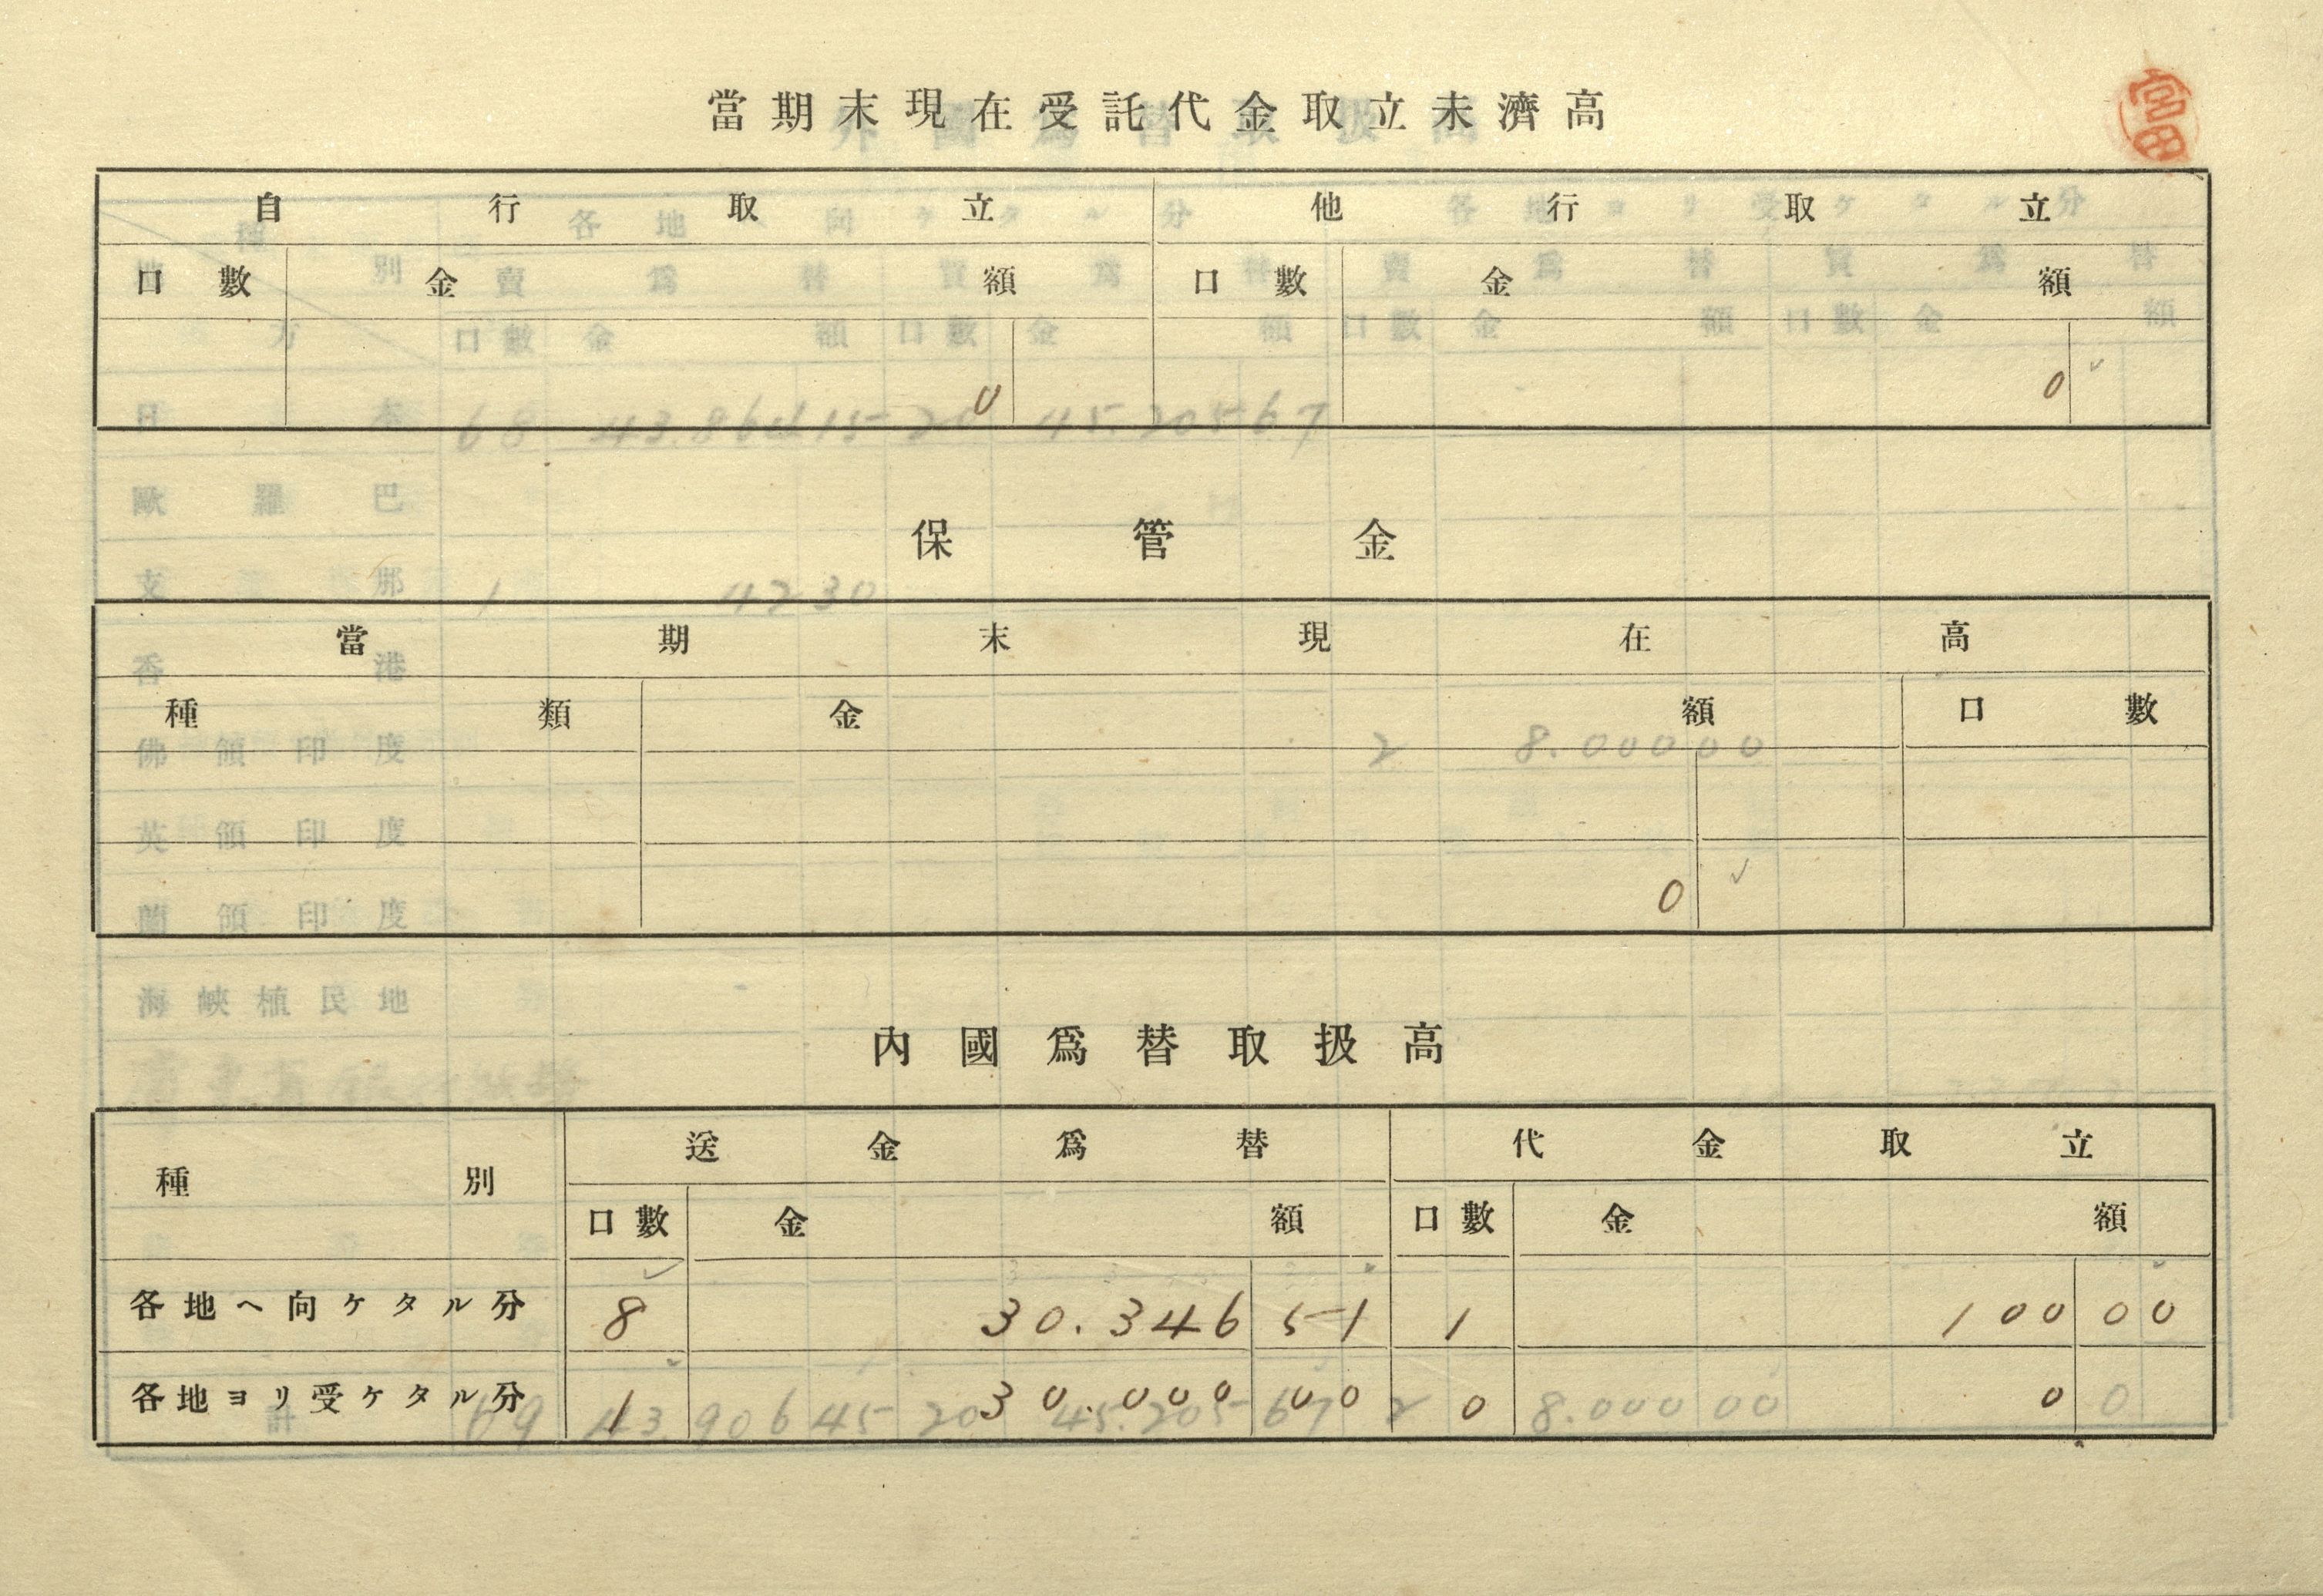 當期末現在受託代金取立未濟高
宮田
自行取立 他行取立
口數 金額 口數 金額
0 0
保管金
當期末現在高
種類 金額 口數
0
內國爲替取扱高
種別 送金爲替 代金取立
口數 金額 口數 金額
各地へ向ケタル分 8 30.346 51 1 100 00
各地ヨリ受ケタル分 1 30.000 00 0 0